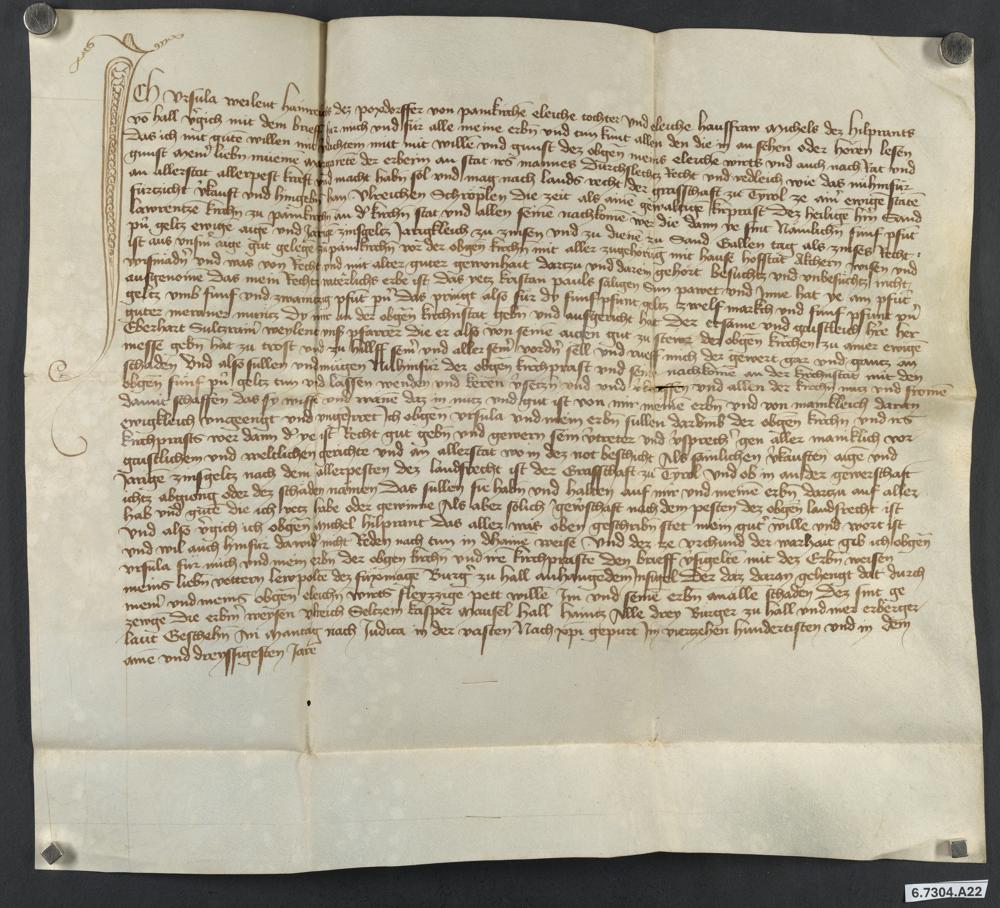 Ich Ursula weilent Hainreichs dez poxdorffer von pawnkirchen eleiche tochter und eleiche hausfraw Michels dez hilprants
vo hall v̈gich mit dem brieff für mich und für alle meine erbn und tun kunt allen den die in an sehen oder hörent lesen
Das ich mit gůtē willen mit bedachtem mut mit wille und gunst dez obgēn meins eleichē wirts und auch nach Rat und
gunst meinr̄ liebn mueme Margarete der erberin an stat irs mannes Durchslechtz Recht und redleich wie das nu hinfür
an allerstat allerpest kraft und macht habn sol und mag nach lands recht der grafschaft zu Tyrol ze ainr̄ ewige stäte
fürzicht v̈kauft und hingebn han Ulreichen Schröplen die zeit als ainē gewaltige kirprast Dez heilige hr̄n Sand
Lawrentzē kirchn zu pawnkirchn an d' kirchn stat und allen seinē nachkomē wer die dann ye sint Nämlichn fünf pfūt
pn̄ geltz ewige aige und Järige zinsgeltz Järigkleich zu zinsen und zu dienē zu Sand Gallen tag als zinses Recht
ist aus unsm aige gůt gelegē zu pawnkirchn vor der obgen kirchn mit aller zugehörūg mit hause hofstat Äkhern wisen und
wismädn und was von Recht und mit alter guter gewonhait dartzu und darein gehört besuchtz und unbesuchtz nicht
ausgenomē Das mein Recht väterlichs erbe ist Das yetz kristan pauls säligen Sun pawet und Inne hat ye ain pfūt
geltz umb fünf und zwaintzig pfūt pn̄ Das pringt also für dy fünf pfunt geltz zwelf markch und fünf pfūt pn̄
guter meraner münitz Dy mir an der obgen kirchnstat gebn und ausgericht hat Der ersame und geistleich hrē her
Eberhart Sultzrainr̄ weylent uns pfarrer die er also von seinē aigen gut zu stewr der obgen kirchen zu ainer ewige
messe gebn hat zu trost und zu hilff seinr̄ und aller seinr̄ vordn̄ sell und rueff mich der gewert gar und gantz an
schaden Und also sullen und mügen Nu hinfür der obgen kirchprast und sein nachkomē an der kirchnstat mit den
obgen fünf pn̄ geltz tun und lassen wenden und keren v̈setzn und und und allen der kirchn nutz und fromē
damit schaffen das sy wisse und wanē daz in nutz und gut ist von mir meinē erbn und von mainkleich daran
ewigkleich ungeengt und ungeirret Ich obgen Ursula und mein erbn sullen darumb der obgen kirchn und irs
kirchprasts wer dann d' ye ist Recht gut gebn und gewern sein v̈treter und v̈sprechr̄ gen aller mainklich vor
geistlichem und weltlichen gerichte und an allerstat wo in dez not beschicht Als sämlichen v̈kauften aige und
Järige zinsgeltz nach dem allerpesten dez landsrecht ist der Grafschaft zu Tyrol Und ob in an der gewerschaft
ichtz abgieng oder dez schäden nämen Das sullen sie habn und halten auf mir und meinē erbn dartzu auf aller
hab und gute die ich yetz habe oder gewinne Als aber solich gewschaft nach dem pesten dez obgen landsrecht ist
Und also v̈gich ich obgen Michel hilprant das allez was oben geschribn stet mein gut' wille und wort ist
und wil auch hinfür dawid' nicht Reden nach tun in dhaine weise Und dez ze urchund der warhait gib ich obgen
Ursula für mich und mein erbn der obgen kirchn und irē kirchprasten den brieff v̈sigelte mit dez Erbn weisen
meins liebn vettern Lewpolte dez fürōmage Burgr̄ zu hall anhangedem Insigel Der daz daran gehengt hat durch
meinr̄ und meins obgen eleichn wirts fleyzzige pett wille Im und seinē erbn an alle schaden Dez sint ge
zewge Die erbn weysen Ulreich Seltzem kasper Mausel hall haintz Alle drey Burger zu hall und mer erberger
läut Geschehn Am Mantag nach Judica in der vasten Nach xp̄i gepurt Im viertzehen hundertisten und in dem
ainē und dreyssigesten Jare
6.7304.A22